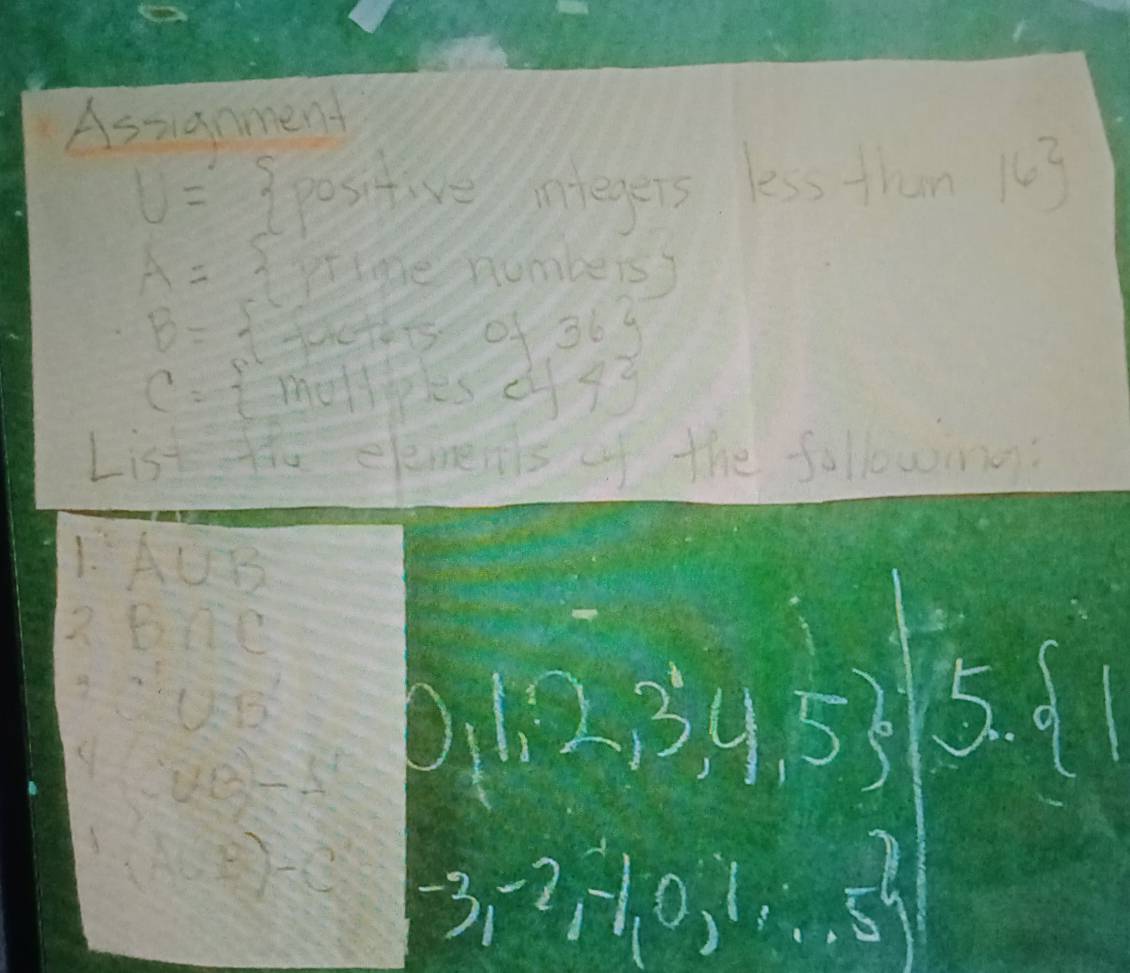 Assignment
U = {positive integers less than 16}
A = {prime numbers}
B = {factors of 36}
C = {multiples of 4}
List the elements of the following:
1. A U B
2 B ∩ C
U B'
4 U B) -
(A U B) - C
0, 1, 2, 3, 4, 5}
5. {1
-3, -2, -1, 0, 1, ... 5}